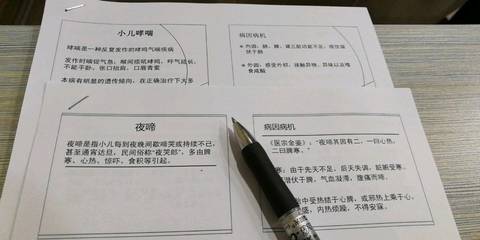 小儿哮喘
哮喘是一种反复发作的哮鸣气喘疾病
发作时喘促气急，喉间痰吼哮鸣，呼气延长，
不能平卧、张口抬肩，口唇青紫
本病有明显的遗传倾向，在正确治疗下大多
病因病机
内因，肺、脾、肾三脏功能不足，痰饮深
伏于肺
外因，感受外邪、接触异物、异味以及嗜
食咸酸
夜啼
夜啼是指小儿每到夜晚间歇啼哭或持续不已，
甚至通宵达旦，民间俗称“夜哭郎”，多由脾
寒、心热、惊吓、食积等引起。
病因病机
《医宗金鉴》：“夜啼其因有二，一曰心热，
二曰脾寒。
寒：由于先天不足，后天失调，脏腑受寒、
潜伏于脾，气血凝滞，腹痛而啼。
胎中受热结于心脾，或邪热上乘于心，
盛，内热烦躁，不得安寐。